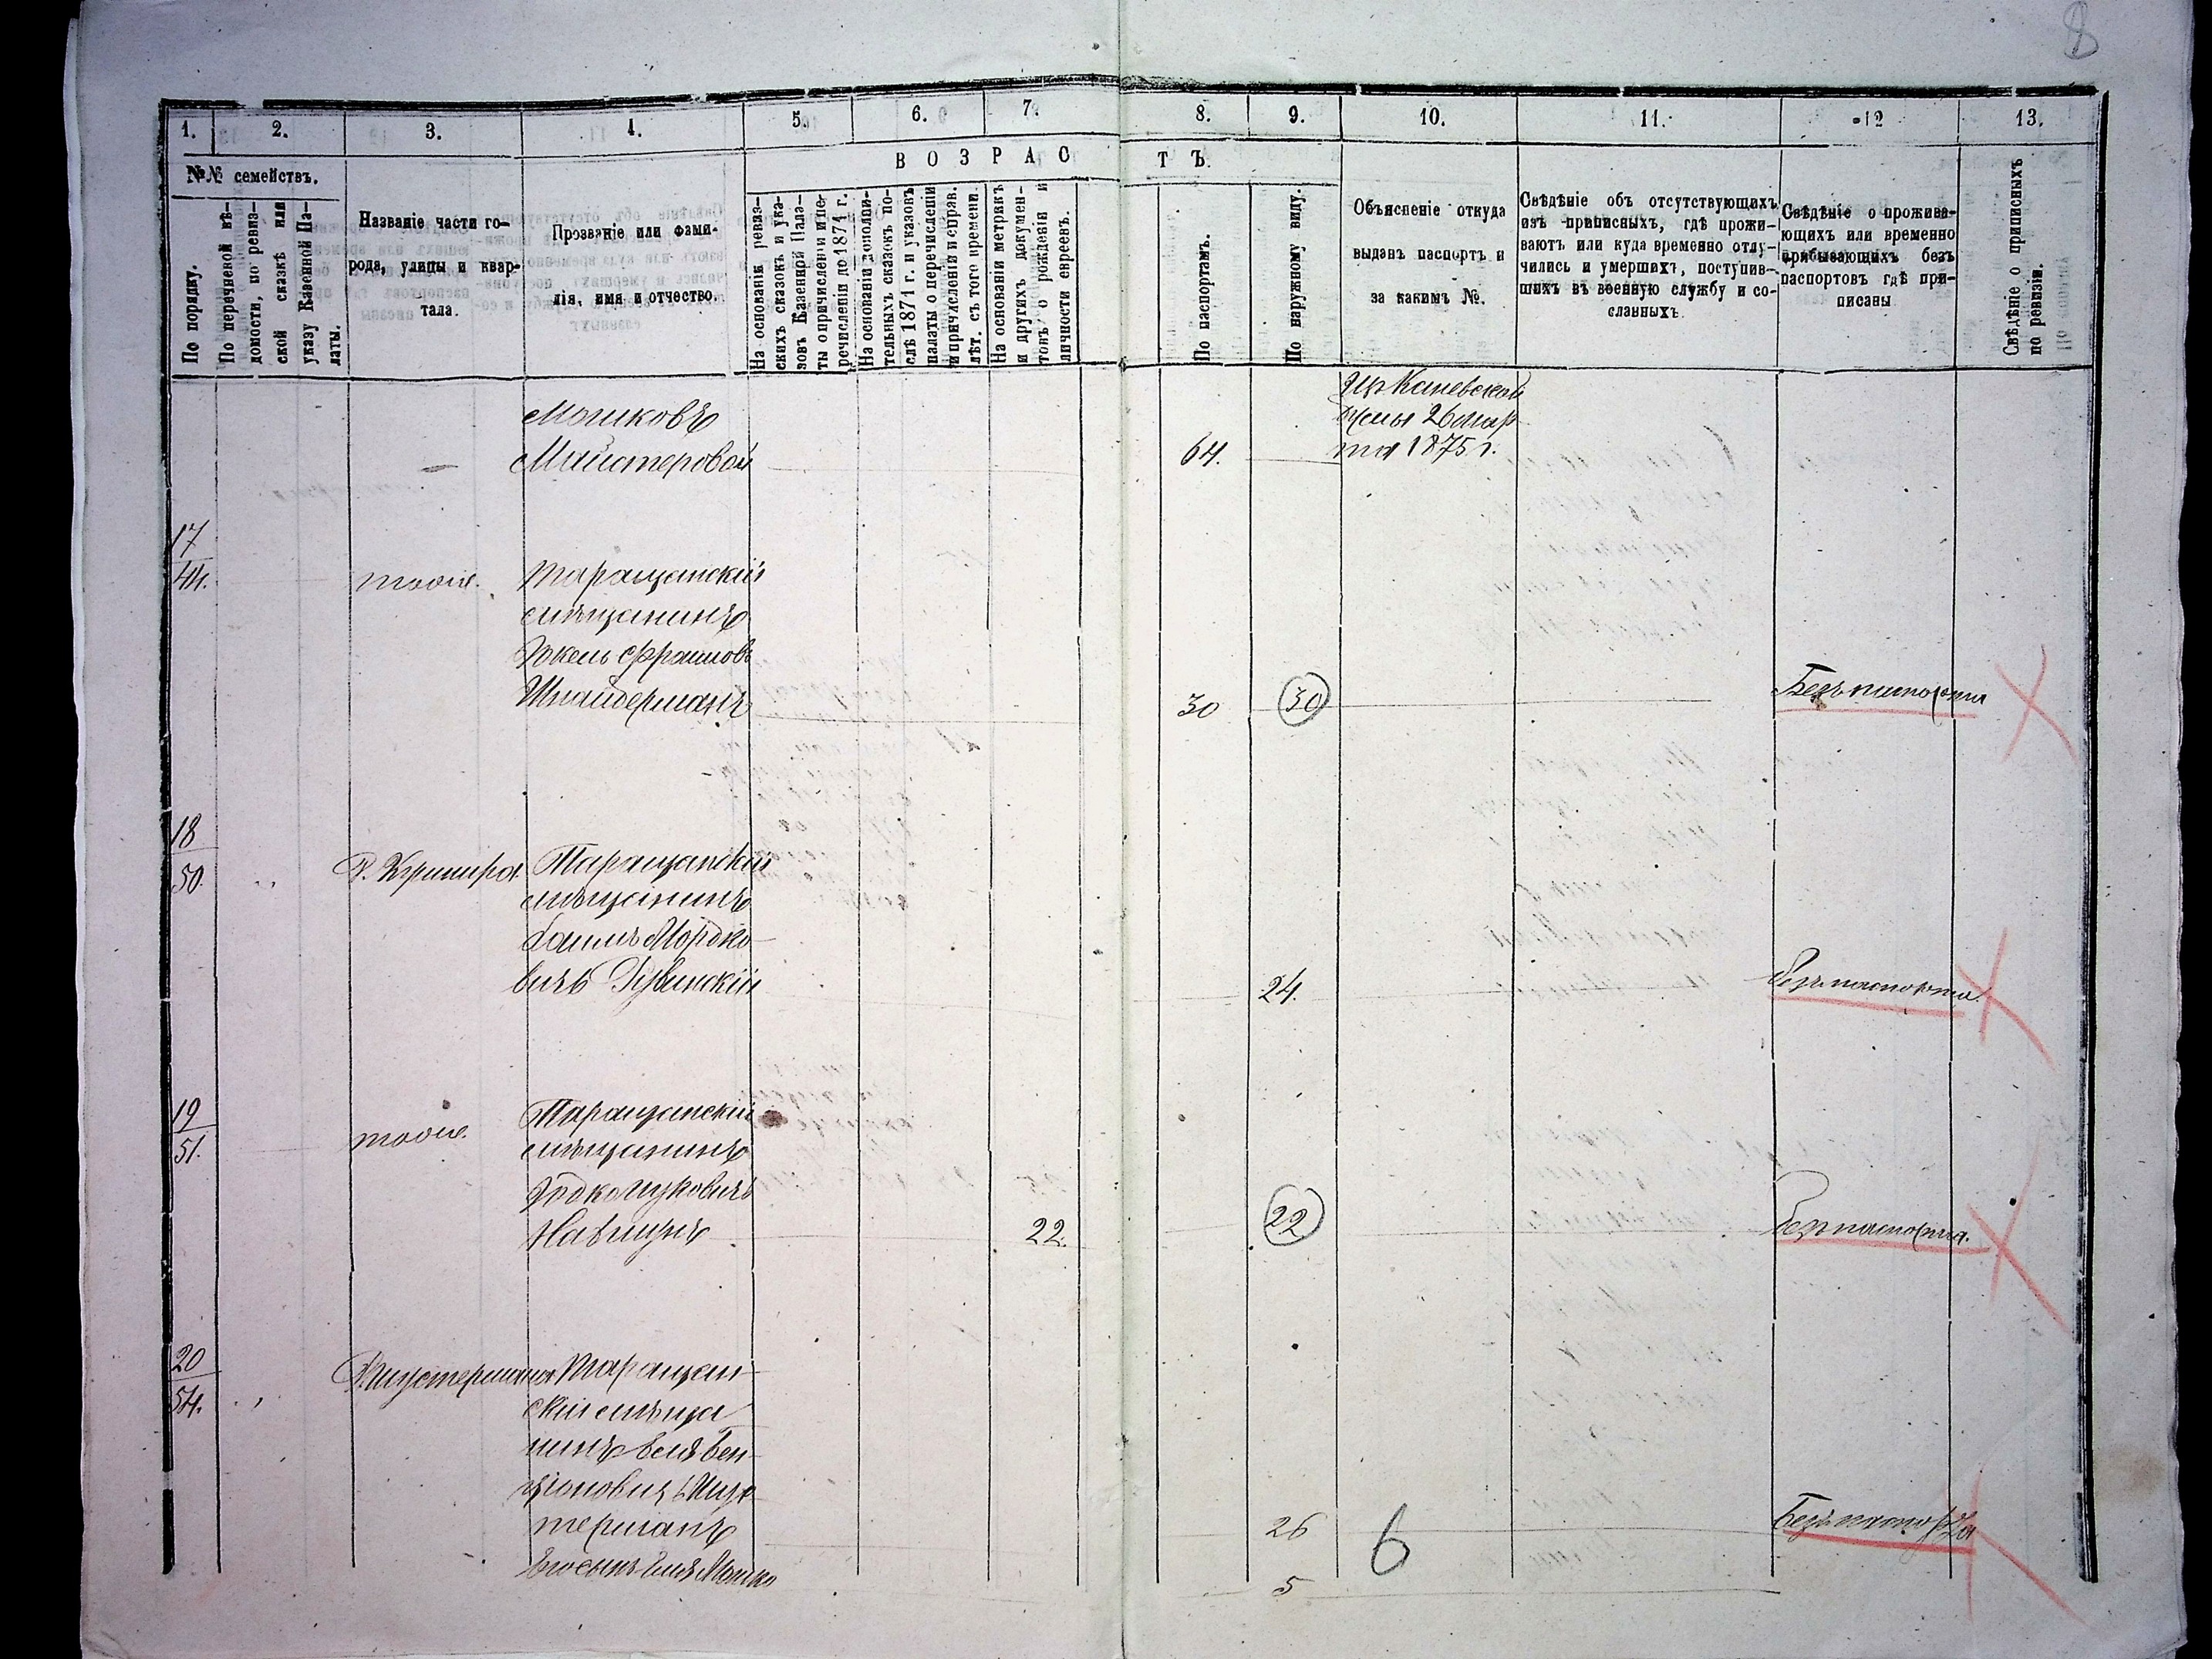 8
1. 2. 3. 4. 5. 6. 7. 8. 9. 10. 11. 12 13.
№№ семействъ.
В О З Р А С Т Ъ.
По порядку.
По перечневой вѣ-
домости, по ревиз-
ской сказкѣ или
указу Казенной Па-
латы.
Названіе части го-
рода, улицы и квар-
тала.
Прозваніе или фами-
лія, имя и отчество.
На основаніи ревиз-
скихъ сказокъ и ука-
зовъ Казенной Пала-
ты о причисленіи и пе-
речисленіи до 1874 г.
На основаніи дополни-
тельныхъ сказокъ по-
слѣ 1874 г. и указовъ
палаты о перечисленіи
и причисленіи и справ.
лѣт. съ того времени.
На основаніи метрикъ
и другихъ докумен-
товъ о рожденіи и
личности евреевъ.
По паспортамъ.
По наружному виду.
Объясненіе откуда
выданъ паспортъ и
за какимъ №.
Свѣдѣніе объ отсутствующихъ
изъ приписныхъ, гдѣ прожи-
ваютъ или куда временно отлу-
чились и умершихъ, поступив-
шихъ въ военную службу и со-
сланныхъ.
Свѣдѣніе о прожива-
ющихъ или временно
прибывающихъ безъ
паспортовъ гдѣ при-
писаны
Свѣдѣніе о приписныхъ
по ревизіи.
Мошковъ
Майстеровой
64.
Каневской
26 мар
та 1875 г.
17
44.
тоже.
Таращанскій
мѣщанинъ
Шнайдерманъ
30
30
Безъ паспорта
18
50.
Таращанскій
мѣщанинъ
Хаимъ Мордко-
вичъ
24.
безъ паспорта.
19
51.
тоже.
Таращанскій
мѣщанинъ
22.
22
безъ паспорта.
20
54.
Таращан-
скій мѣща
нинъ Бен-
ціоновичъ Шус
терманъ
26
6
Безъ паспорта
Его сынъ Мошко
5